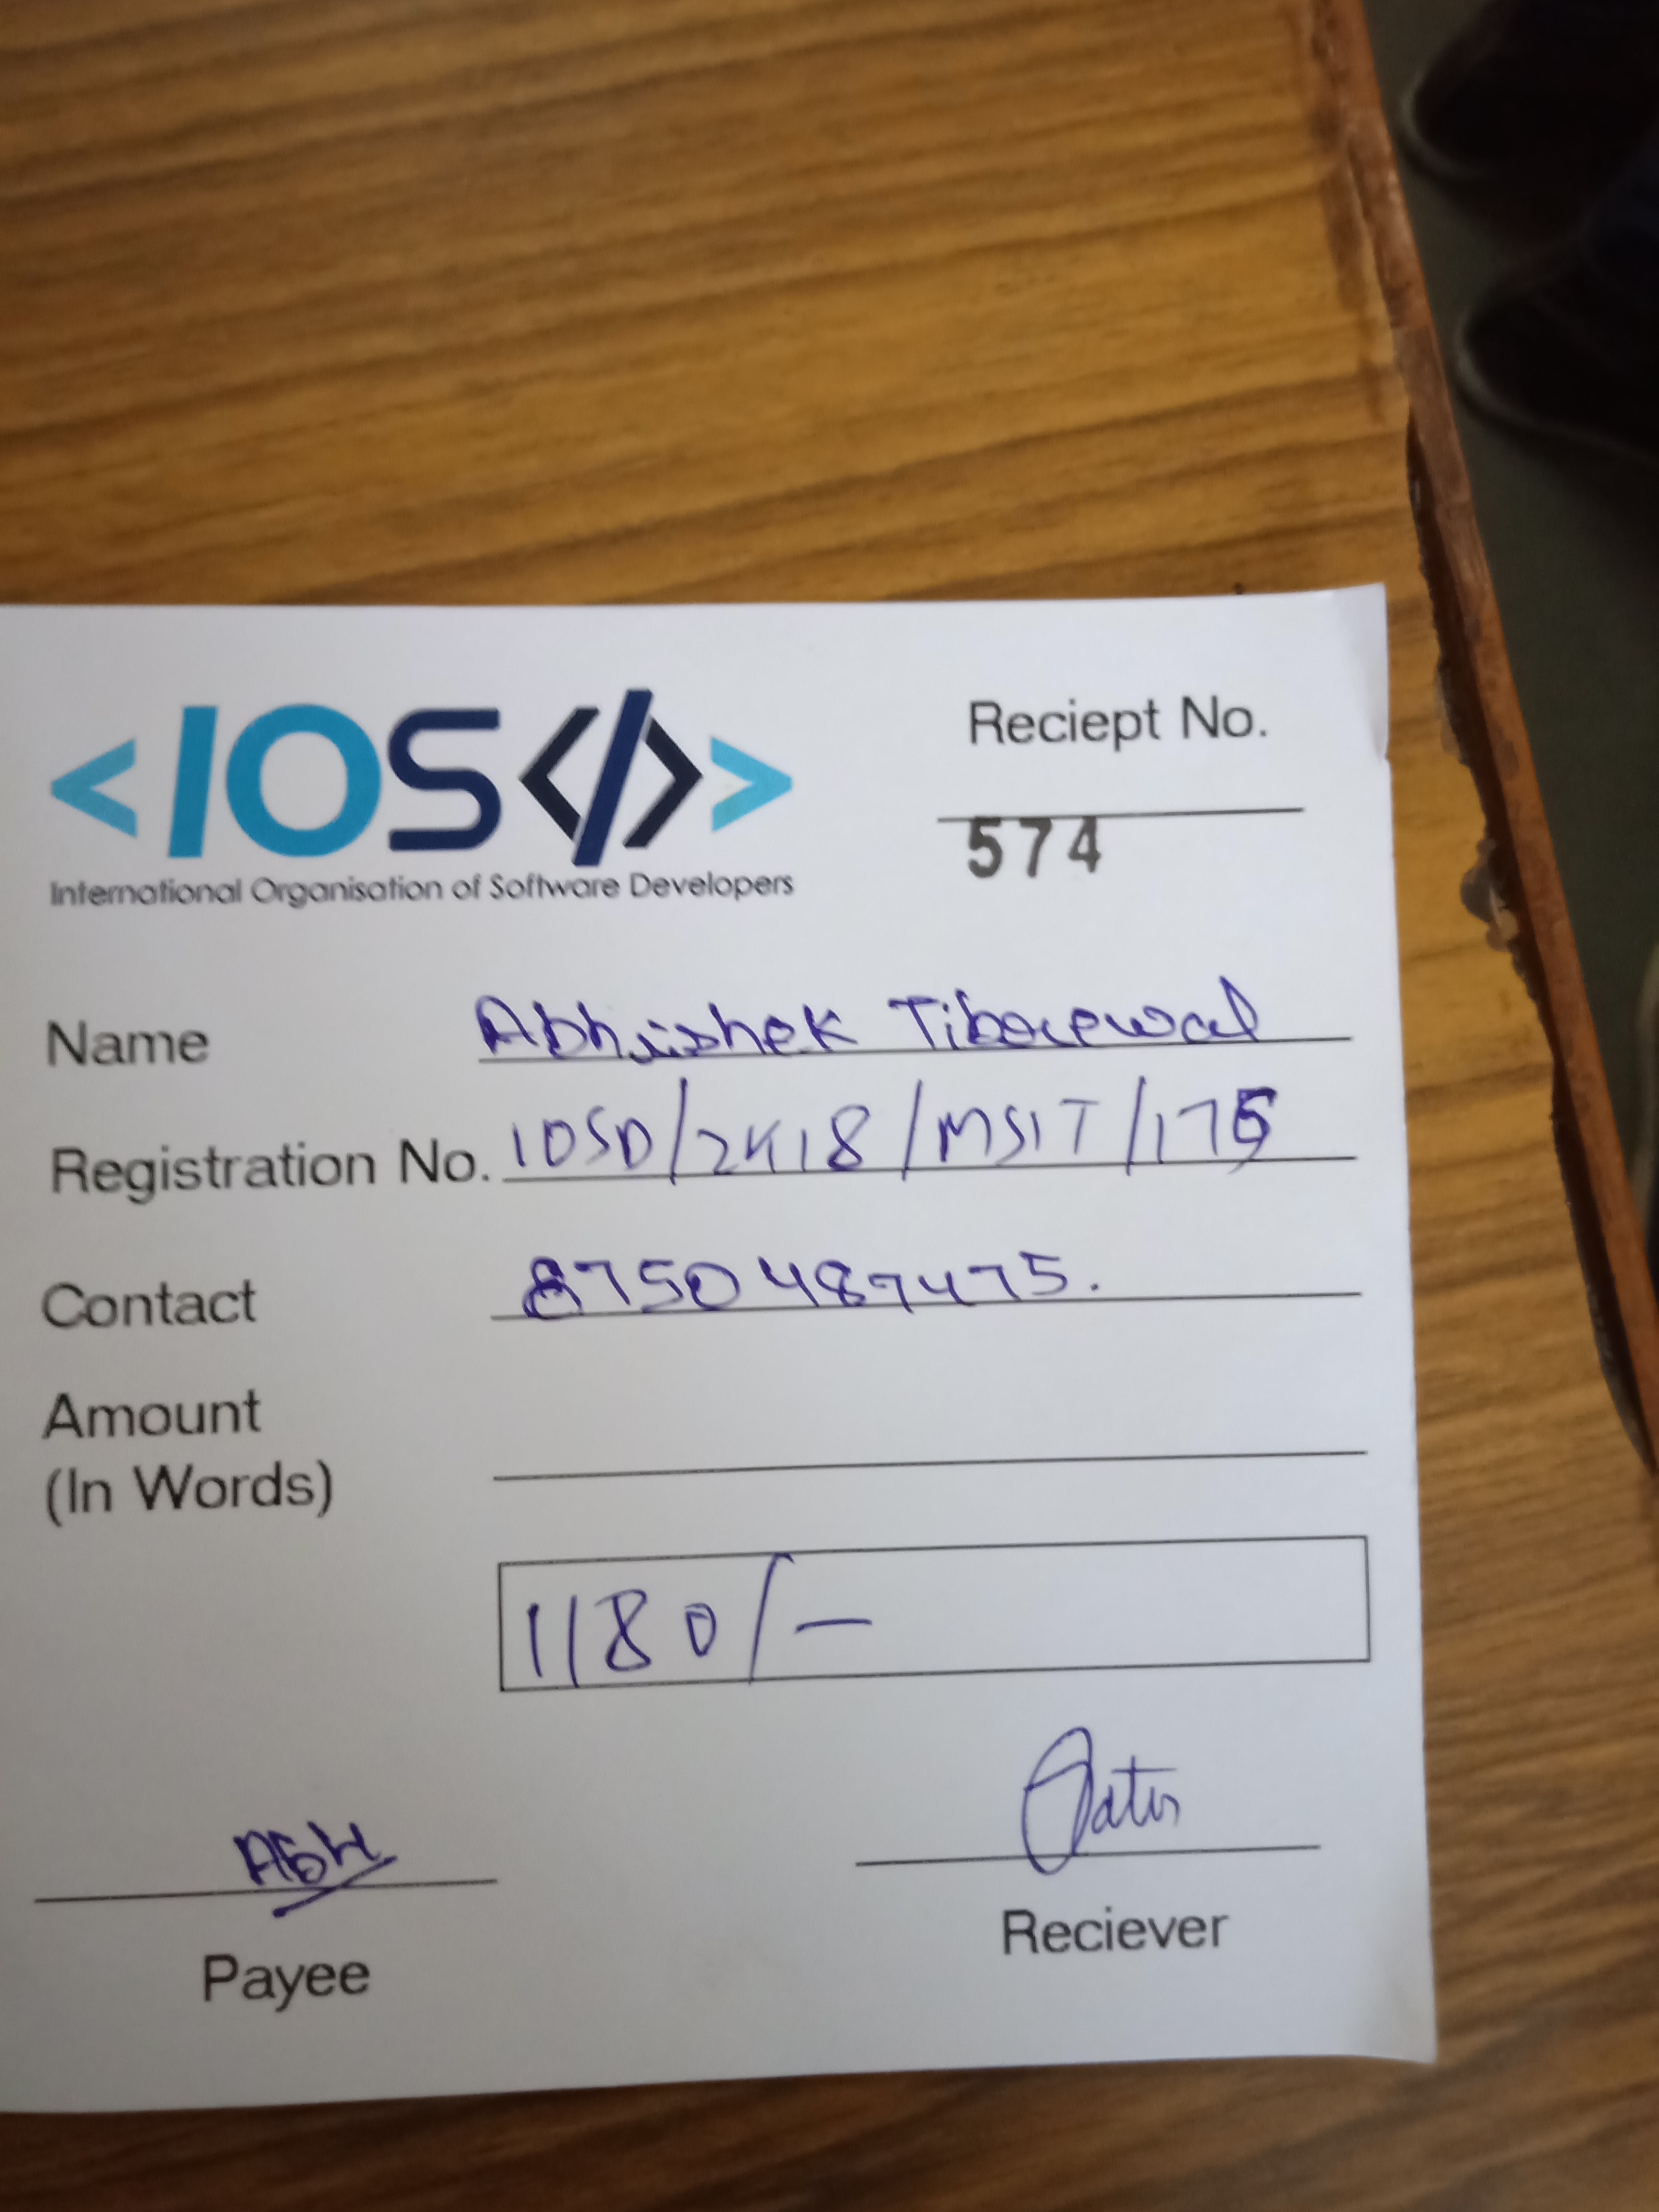 <IOS</>>
International Organisation of Software Developers
Reciept No.
574
Name Abhishek Tibarewal
Registration No. IOSD/2K18/MSIT/175
Contact 8750487475.
Amount
(In Words)
1180/-
ABH
Payee
Reciever